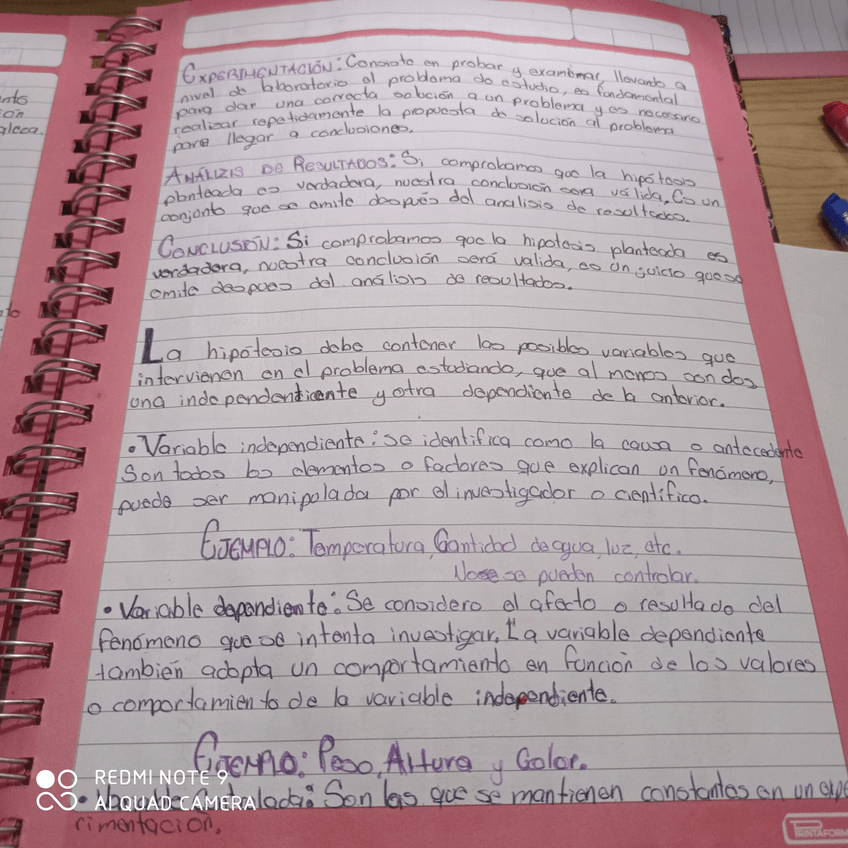 ents
on
gleca.
to
EXPERIMENTACIÓN: Consiste en probar y examinar, llevando a
nivel de laboratorio el problema de estudio, es fundamental
para dar una correcta solución a un problema y es necesario
realizar repetidamente la propuesta de solución al problema
para llegar a conclusiones.
ANÁLIZIS DE RESULTADOS: Si comprobamos que la hipótesis
planteada es verdadera, nuestra conclusión sera válida, Es un
conjunto que se emite después del analisis de resultados.
CONCLUSIÓN: Si comprobamos que la hipotesis planteada es
verdadera, nuestra conclusión será valida, es un juicio que se
emite despues del análisis de resultados.
La hipótesis debe contener las posibles variables que
intervienen en el problema estudiando, que al menos son dos
una independenticente y otra dependiente de la anterior.
• Variable independiente: se identifica como la causa o antecedente
Son todos los elementos o factores que explican un fenómeno,
puede ser manipulada por el investigador o científico.
EJEMPLO: Temperatura, Cantidad de agua, luz, etc.
se pueden controlar.
• Variable dependiente: Se considero el efecto o resultado del
fenómeno que se intenta investigar. La variable dependiente
también adopta un comportamiento en función de los valores
o comportamiento de la variable independiente.
EJEMPLO: Peso, Altura y Color.
• Son las que se mantienen constantes en un expe
rimentación.
REDMI NOTE 9
AI QUAD CAMERA
PRINTAFORM